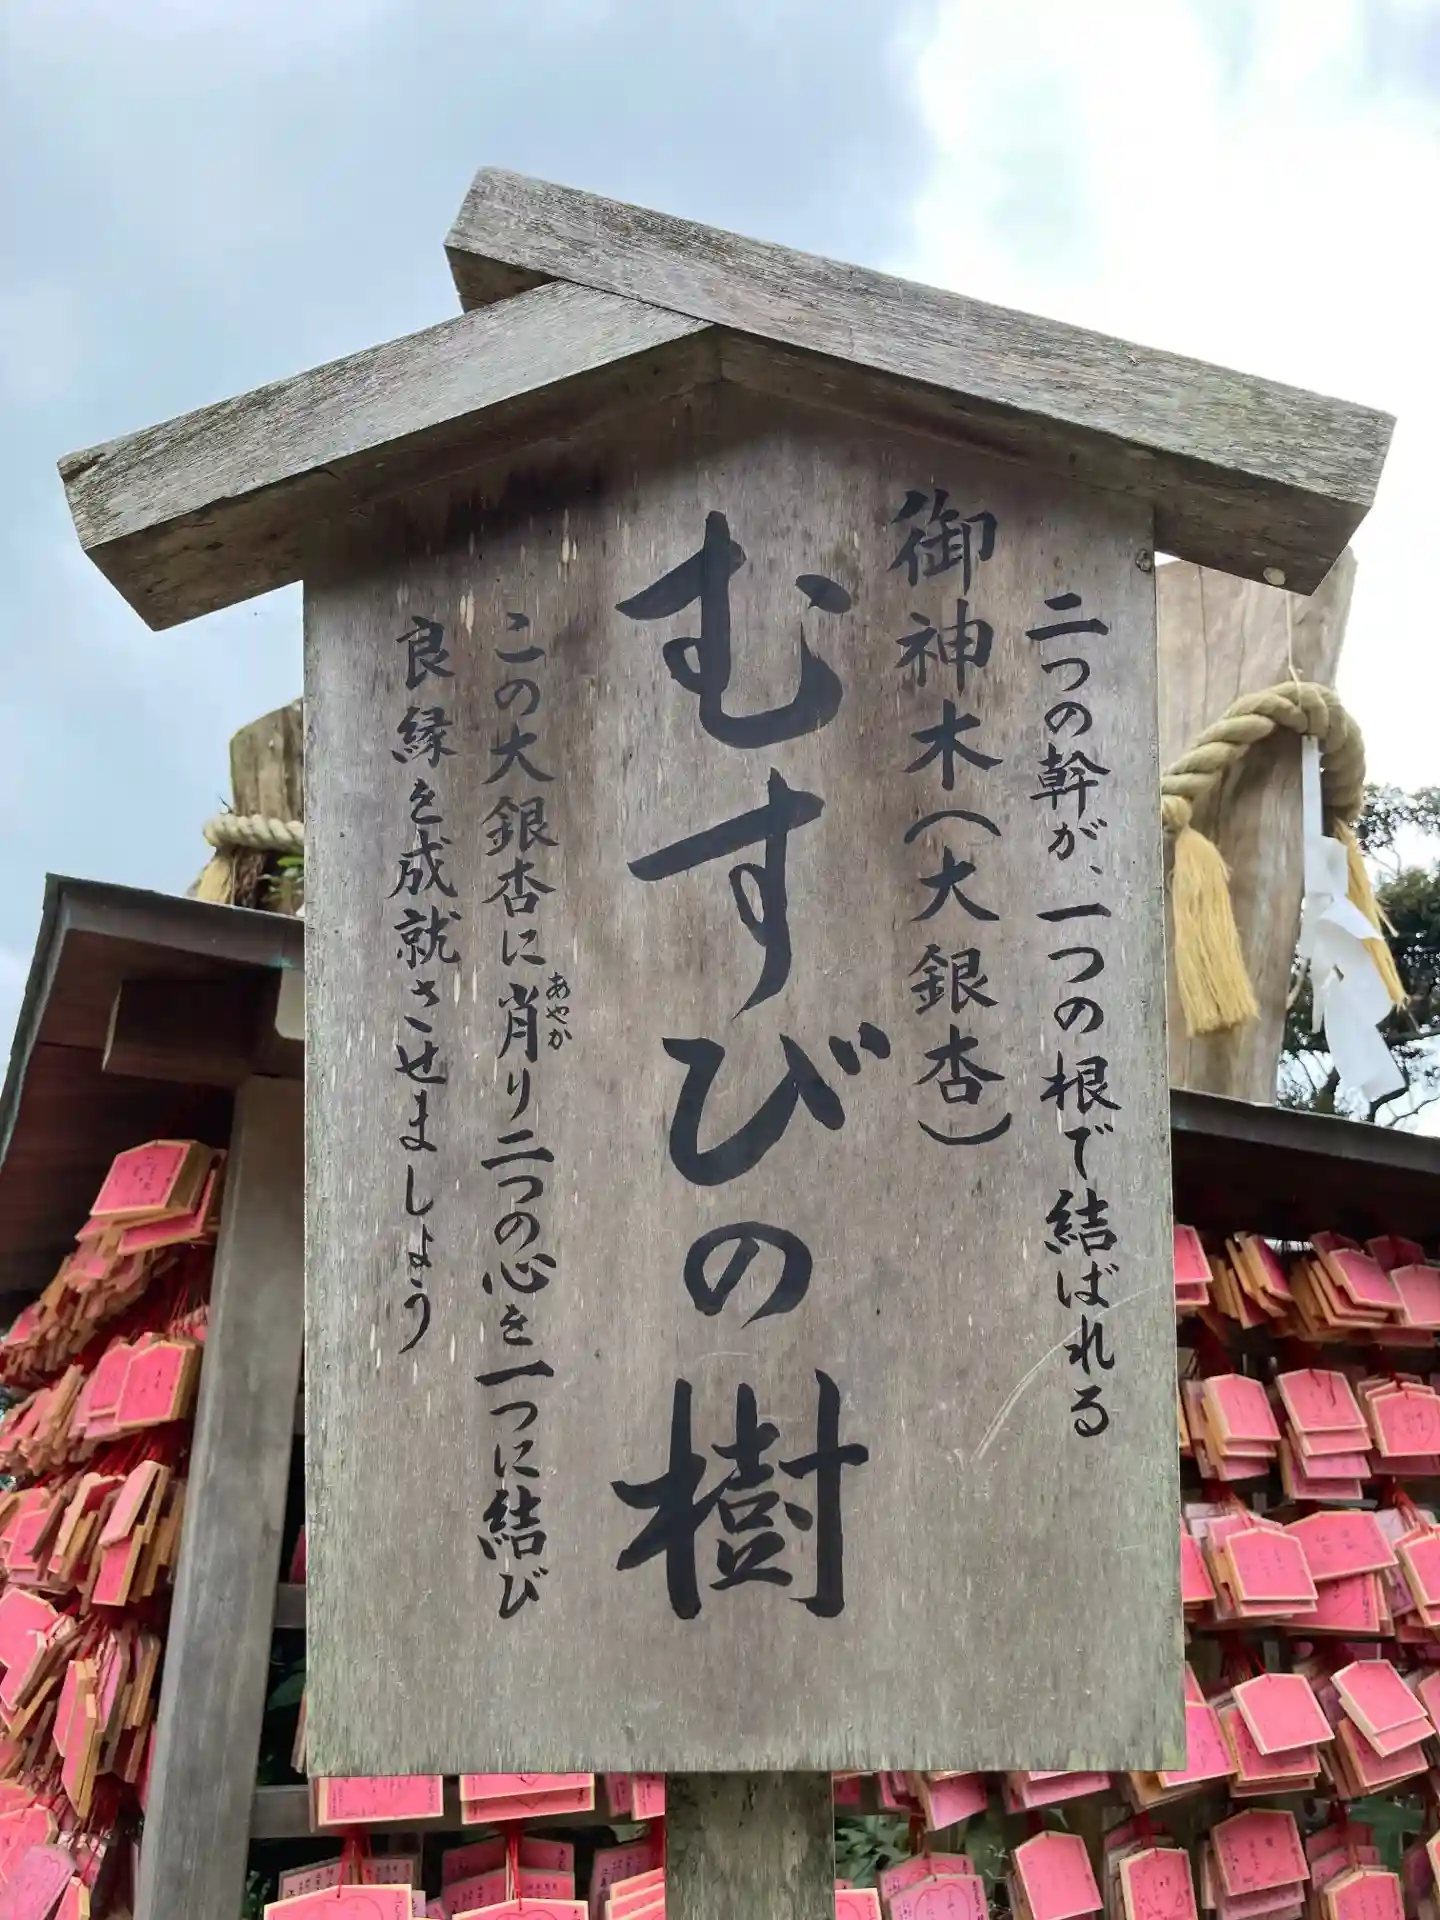 二つの幹が、一つの根で結ばれる
御神木(大銀杏)
むすびの樹
この大銀杏に肖り二つの心を一つに結び
あやか
良縁を成就させましょう